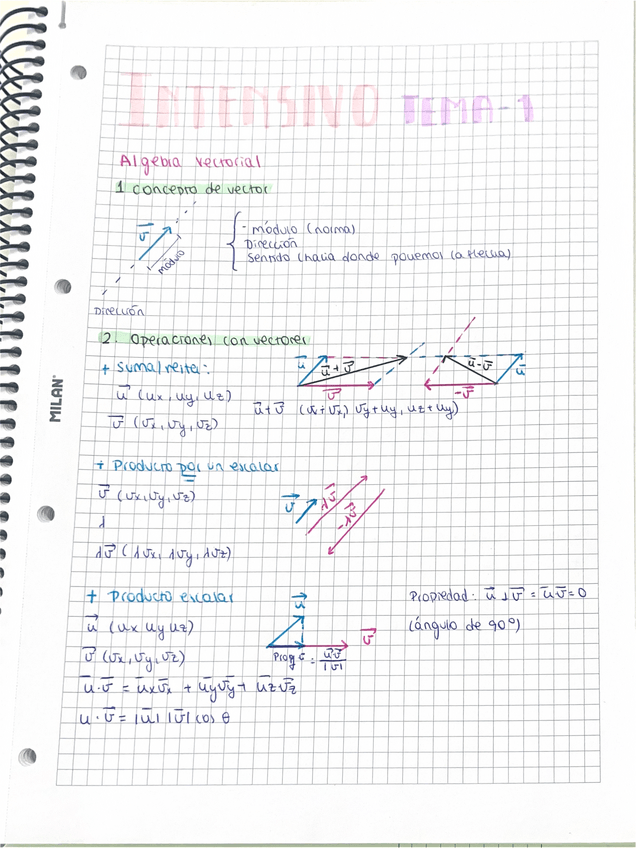 INTENSIVO TEMA-1
Algebra vectorial
1 concepto de vector
v⃗
módulo
- módulo (norma)
Dirección
Sentido (hacia donde ponemos la flecha)
Dirección
2. Operaciones con vectores
+ Suma/resta:
u⃗ (ux, uy, uz)
v⃗ (vx, vy, vz)
u⃗ u⃗+v⃗ v⃗
u⃗-v⃗ u⃗ -v⃗
u⃗+v⃗ (ux+vx, vy+uy, uz+uy)
+ Producto por un escalar
v⃗ (vx, vy, vz)
λ
λv⃗ (λvx, λvy, λvz)
v⃗ λv⃗ -λv⃗
+ Producto escalar
u⃗ (ux uy uz)
v⃗ (vx, vy, vz)
u̅·v̅ = u̅xv̅x + u̅yv̅y + u̅zv̅z
u·v̅ = |u̅| |v̅| cos θ
u⃗
v⃗
= u̅v̅/|v̅|
Propiedad: u⃗ ⊥ v̅ = u̅v̅=0
(ángulo de 90°)
MILAN